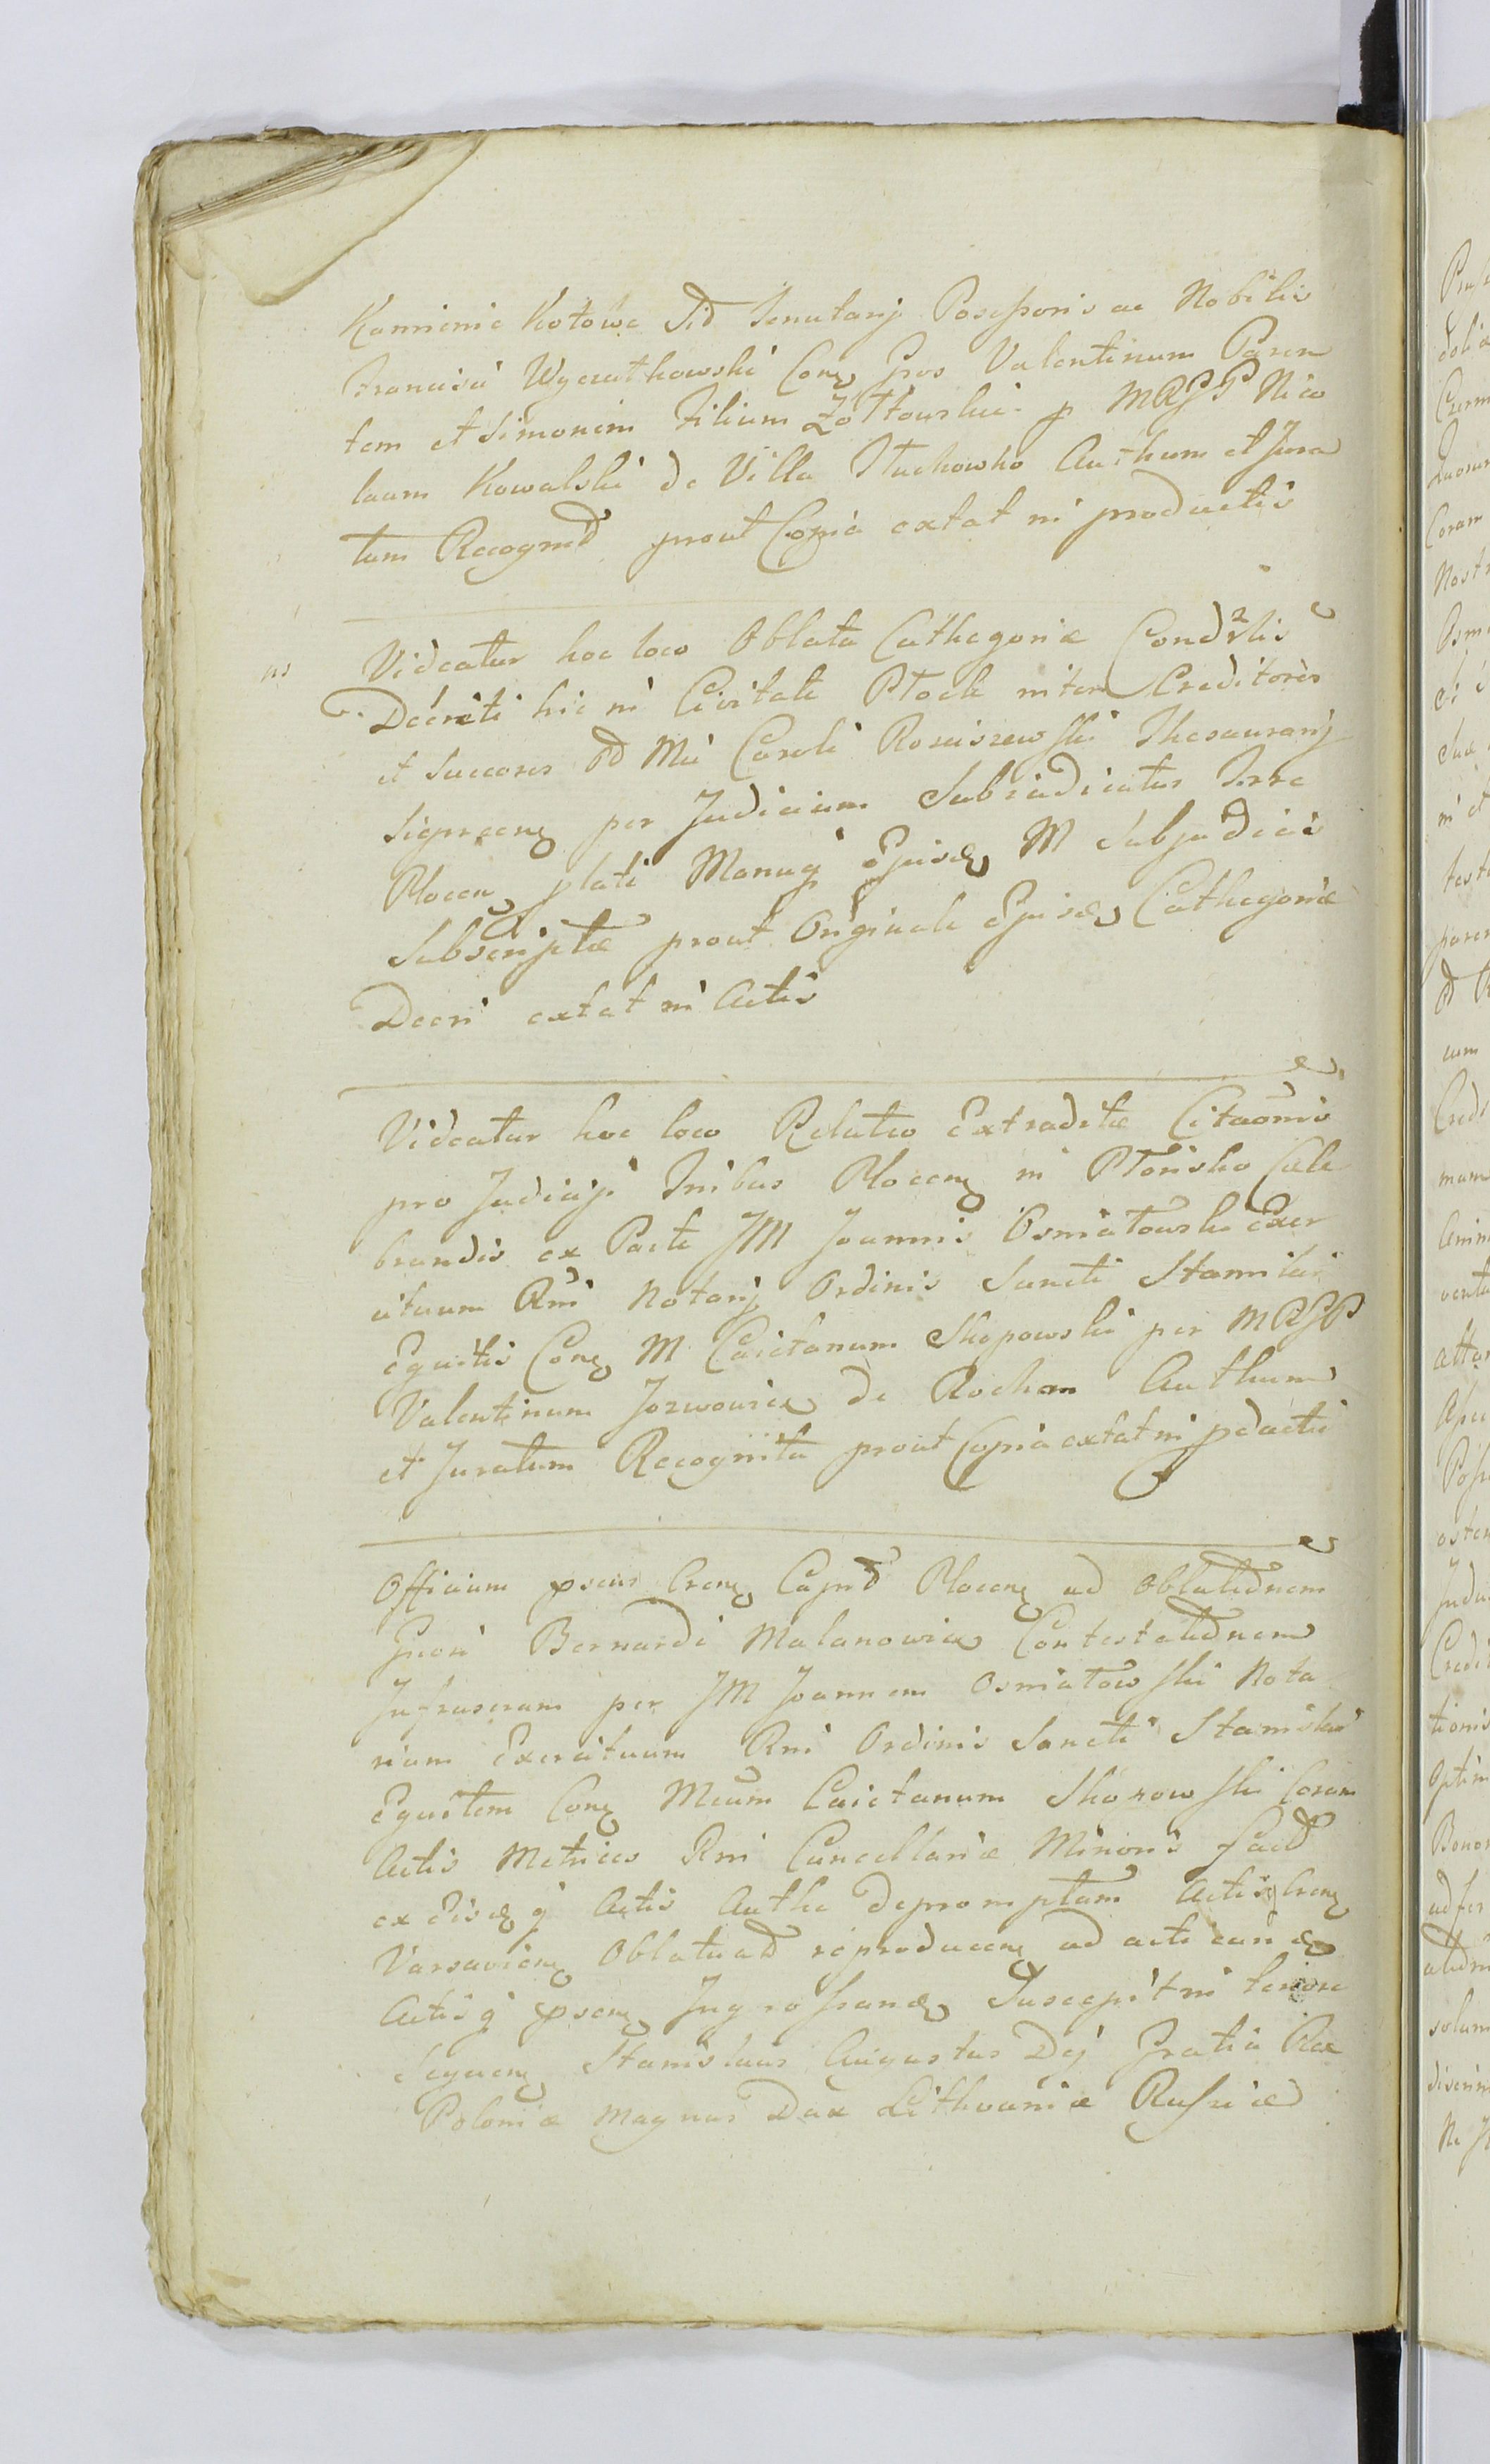 Kamienie Kotowe Sid Tenutarij Possessoris ac Nobilis
Francisci Wyczałkowski Conq Gsos Valentinum Paren
tem et Simonem Filium Żółtowskie p MRGP Nico
laum Kowalski de Villa Słuchowko Authum et Jura
tum Recognid prout Copia extat in productis
Videatur hoc loco Oblata Cathegoriæ Condlis
Decreti hic in Civitate Płock inter Creditores
et Succores Mci Caroli Rosciszewski Thesaurarij
Sieprcenq per Judicium Subiudicatus Terre
Plocen plati Manuq Ejusdq M Subjudicis
Subscriptæ prout Originale Ejusdq Cathegoriæ
Decri extat in Actis
Videatur hoc loco Relatio Extraditæ Citaonis
pro Judicijs Tribus Plocenq in Płońsko Cele
brandis ex Parte JM Joannis Osmiałowski Exer
cituum Rni Notarij Ordinis Sancti Stanislai
Equitis Conq M Caietanum Skopowski per MRGP
Valentinum Jozwowicz de Rochan Authum
et Juratum Recognita prout Copia extat in pductis
Officium psens Crenq Capnd Plocenq ad Oblatidnem
Gsori Bernardi Malanowicz Contestatidnem
Infrascram per JM Joannem Osmiałowski Nota
rium Exercituum Rni Ordinis Sancti Stanislai
Equitem Conq Mcum Caietanum Skopowski Coram
Actis Metrices Rni Cancellariæ Minoris facd
ex Eisdq q Actis Authe depromptam Actisq Crenq
Varsavienq Oblatuad reproducenq ad acticandq
Actisq psenq Ingrossandq Suscepit in tenore
Sequenq Stanislaus Augustus Dej Gratia Rex
Poloniæ Magnus Dux Lithvaniæ Russiæ